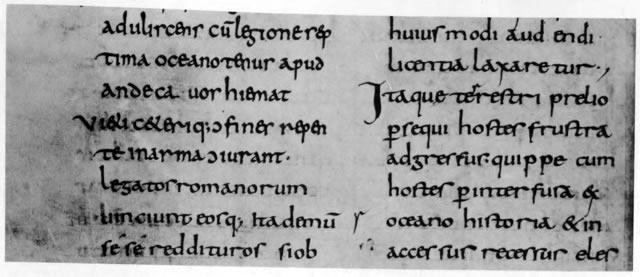 aduliscens cū legione sep
tima oceanotenus apud
andeca uos hiemat
Vi&i c&eriq; ɔfines repen
te inarma ɔiurant.
legatosromanorum
uinciunt eosq; Itademū
sese reddituros siob
huiusmodi audendi
licentia laxaretur.,
Itaque terrestri prelio
ꝑsequi hostes frustra
adgressus; quippe cum
hostes ꝑinterfusa &
oceano historia & in
accessus recessus eles